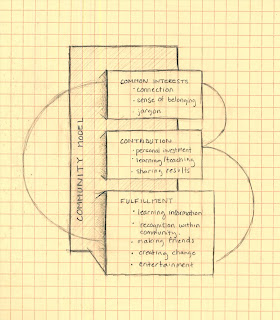 COMMUNITY MODEL
COMMON INTERESTS
• connection
• sense of belonging
jargon
CONTRIBUTION
• personal investment
• learning/teaching
• sharing results
FULFILLMENT
• learning information
• recognition within
community.
• making friends
• creating change
• entertainment